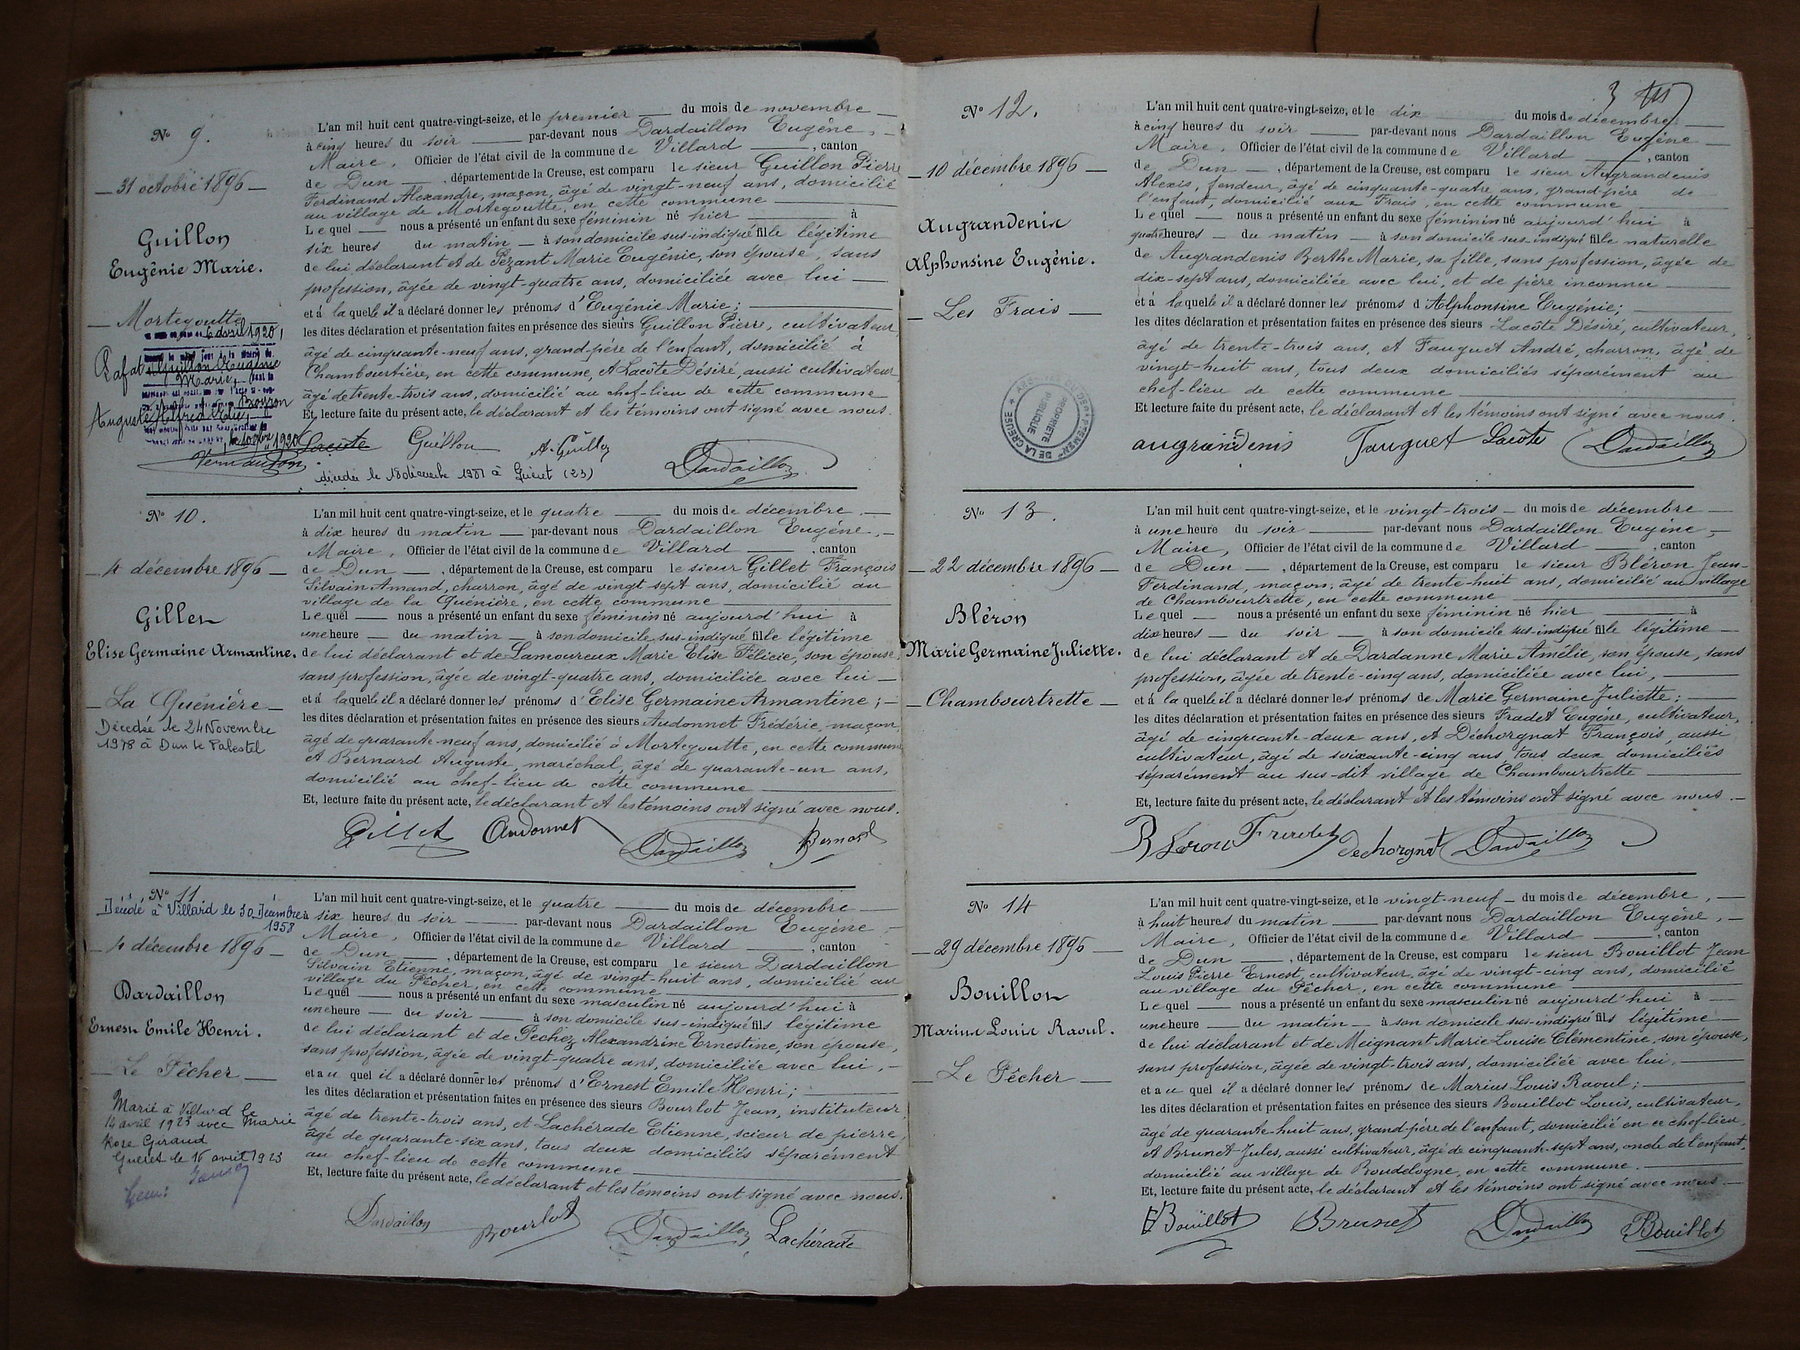 Nº 9.
31 octobre 1896
Guillon
Eugénie Marie.
Mortegoutte
6 avril 1920
Guillon Eugénie
Marie
Auguste
L'an mil huit cent quatre-vingt-seize, et le premier du mois de novembre
à cinq heures du soir par-devant nous Dardaillon Eugène,
Maire, Officier de l'état civil de la commune de Villard, canton
de Dun, département de la Creuse, est comparu le sieur Guillon Pierre
Ferdinand Alexandre, maçon, âgé de vingt-neuf ans, domicilié
au village de Mortegoutte, en cette commune
Lequel nous a présenté un enfant du sexe féminin né hier à
six heures du matin à son domicile sus-indiqué fille légitime
de lui déclarant et de Pézant Marie Eugénie, son épouse, sans
profession, âgée de vingt-quatre ans, domiciliée avec lui
et à laquelle il a déclaré donner les prénoms d'Eugénie Marie;
les dites déclaration et présentation faites en présence des sieurs Guillon Pierre, cultivateur
âgé de cinquante-neuf ans, grand-père de l'enfant, domicilié à
Chambourtière, en cette commune, et Lacôte Désiré, aussi cultivateur
âgé de trente-trois ans, domicilié au chef-lieu de cette commune
Et, lecture faite du présent acte, le déclarant et les témoins ont signé avec nous.
Lacôte Guillon A. Guillon Dardaillon
décédée le 18 décembre 1981 à Guéret (23)
Nº 10.
4 décembre 1896
Gillet
Elise Germaine Armantine.
La Quénière
Décédée le 24 Novembre
1978 à Dun le Palestel
L'an mil huit cent quatre-vingt-seize, et le quatre du mois de décembre
à dix heures du matin par-devant nous Dardaillon Eugène,
Maire, Officier de l'état civil de la commune de Villard, canton
de Dun, département de la Creuse, est comparu le sieur Gillet François
Silvain Amand, charron, âgé de vingt sept ans, domicilié au
village de la Quénière, en cette commune
Lequel nous a présenté un enfant du sexe féminin né aujourd'hui à
une heure du matin à son domicile sus-indiqué fille légitime
de lui déclarant et de Lamoureux Marie Elise Félicie, son épouse,
sans profession, âgée de vingt-quatre ans, domiciliée avec lui
et à laquelle il a déclaré donner les prénoms d'Elise Germaine Armantine;
les dites déclaration et présentation faites en présence des sieurs Audonnet Frédéric, maçon,
âgé de quarante-neuf ans, domicilié à Mortegoutte, en cette commune
et Bernard Auguste, maréchal, âgé de quarante-un ans,
domicilié au chef-lieu de cette commune
Et, lecture faite du présent acte, le déclarant et les témoins ont signé avec nous.
Gillet Audonnet Dardaillon Bernard
Nº 11
Décédé à Villard le 30 Décembre
1958
4 décembre 1896
Dardaillon
Ernest Emile Henri.
Le Pêcher
Marié à Villard le
14 avril 1923 avec Marie
Rose Giraud
Guéret le 16 avril 1923
L'an mil huit cent quatre-vingt-seize, et le quatre du mois de décembre
à six heures du soir par-devant nous Dardaillon Eugène
Maire, Officier de l'état civil de la commune de Villard, canton
de Dun, département de la Creuse, est comparu le sieur Dardaillon
Silvain Etienne, maçon, âgé de vingt-huit ans, domicilié au
village du Pêcher, en cette commune
Lequel nous a présenté un enfant du sexe masculin né aujourd'hui à
une heure du soir à son domicile sus-indiqué fils légitime
de lui déclarant et de Péchez Alexandrine Ernestine, son épouse,
sans profession, âgée de vingt-quatre ans, domiciliée avec lui,
et au quel il a déclaré donner les prénoms d'Ernest Emile Henri;
les dites déclaration et présentation faites en présence des sieurs Bourlot Jean, instituteur
âgé de trente-trois ans, et Lachérade Etienne, scieur de pierre
âgé de quarante-six ans, tous deux domiciliés séparément
au chef-lieu de cette commune
Et, lecture faite du présent acte, le déclarant et les témoins ont signé avec nous.
Dardaillon Bourlot Dardaillon Lachérade
3
Nº 12.
10 décembre 1896
Augrandenis
Alphonsine Eugénie.
Les Frais
ARCHIVES DÉPARTEMENTALES DE LA CREUSE
PROPRIÉTÉ PUBLIQUE
L'an mil huit cent quatre-vingt-seize, et le dix du mois de décembre
à cinq heures du soir par-devant nous Dardaillon Eugène
Maire, Officier de l'état civil de la commune de Villard, canton
de Dun, département de la Creuse, est comparu le sieur Augrandenis
Alexis, fendeur, âgé de cinquante-quatre ans, grand-père de
l'enfant, domicilié aux Frais, en cette commune
Lequel nous a présenté un enfant du sexe féminin né aujourd'hui à
quatre heures du matin à son domicile sus-indiqué fille naturelle
de Augrandenis Berthe Marie, sa fille, sans profession, âgée de
dix-sept ans, domiciliée avec lui, et de père inconnu
et à laquelle il a déclaré donner les prénoms d'Alphonsine Eugénie;
les dites déclaration et présentation faites en présence des sieurs Lacôte Désiré, cultivateur,
âgé de trente-trois ans, et Fauguet André, charron, âgé de
vingt-huit ans, tous deux domiciliés séparément au
chef-lieu de cette commune
Et, lecture faite du présent acte, le déclarant et les témoins ont signé avec nous.
augrandenis Fauguet Lacôte Dardaillon
Nº 13.
22 décembre 1896
Bléron
Marie Germaine Juliette.
Chambourtrette
L'an mil huit cent quatre-vingt-seize, et le vingt-trois du mois de décembre
à une heure du soir par-devant nous Dardaillon Eugène,
Maire, Officier de l'état civil de la commune de Villard, canton
de Dun, département de la Creuse, est comparu le sieur Bléron Jean-
Ferdinand, maçon, âgé de trente-huit ans, domicilié au village
de Chambourtrette, en cette commune
Lequel nous a présenté un enfant du sexe féminin né hier à
dix heures du soir à son domicile sus-indiqué fille légitime
de lui déclarant et de Dardanne Marie Amélie, son épouse, sans
profession, âgée de trente-cinq ans, domiciliée avec lui,
et à laquelle il a déclaré donner les prénoms de Marie Germaine Juliette;
les dites déclaration et présentation faites en présence des sieurs Fradet Eugène, cultivateur,
âgé de cinquante-deux ans, et Déchorgnat François, aussi
cultivateur, âgé de soixante-cinq ans tous deux domiciliés
séparément au sus-dit village de Chambourtrette
Et, lecture faite du présent acte, le déclarant et les témoins ont signé avec nous.
Bléron Fradet Dechorgnat Dardaillon
Nº 14
29 décembre 1896
Bouillot
Marius Louis Raoul.
Le Pêcher
L'an mil huit cent quatre-vingt-seize, et le vingt-neuf du mois de décembre,
à huit heures du matin par-devant nous Dardaillon Eugène,
Maire, Officier de l'état civil de la commune de Villard, canton
de Dun, département de la Creuse, est comparu le sieur Bouillot Jean
Louis Pierre Ernest, cultivateur, âgé de vingt-cinq ans, domicilié
au village du Pêcher, en cette commune
Lequel nous a présenté un enfant du sexe masculin né aujourd'hui à
une heure du matin à son domicile sus-indiqué fils légitime
de lui déclarant et de Meignant Marie Louise Clémentine, son épouse,
sans profession, âgée de vingt-trois ans, domiciliée avec lui,
et au quel il a déclaré donner les prénoms de Marius Louis Raoul;
les dites déclaration et présentation faites en présence des sieurs Bouillot Louis, cultivateur,
âgé de quarante-huit ans, grand-père de l'enfant, domicilié en ce chef-lieu,
et Brunet Jules, aussi cultivateur, âgé de cinquante-sept ans, oncle de l'enfant,
domicilié au village de Roudelogne, en cette commune.
Et, lecture faite du présent acte, le déclarant et les témoins ont signé avec nous
EBouillot Brunet Dardaillon Bouillot